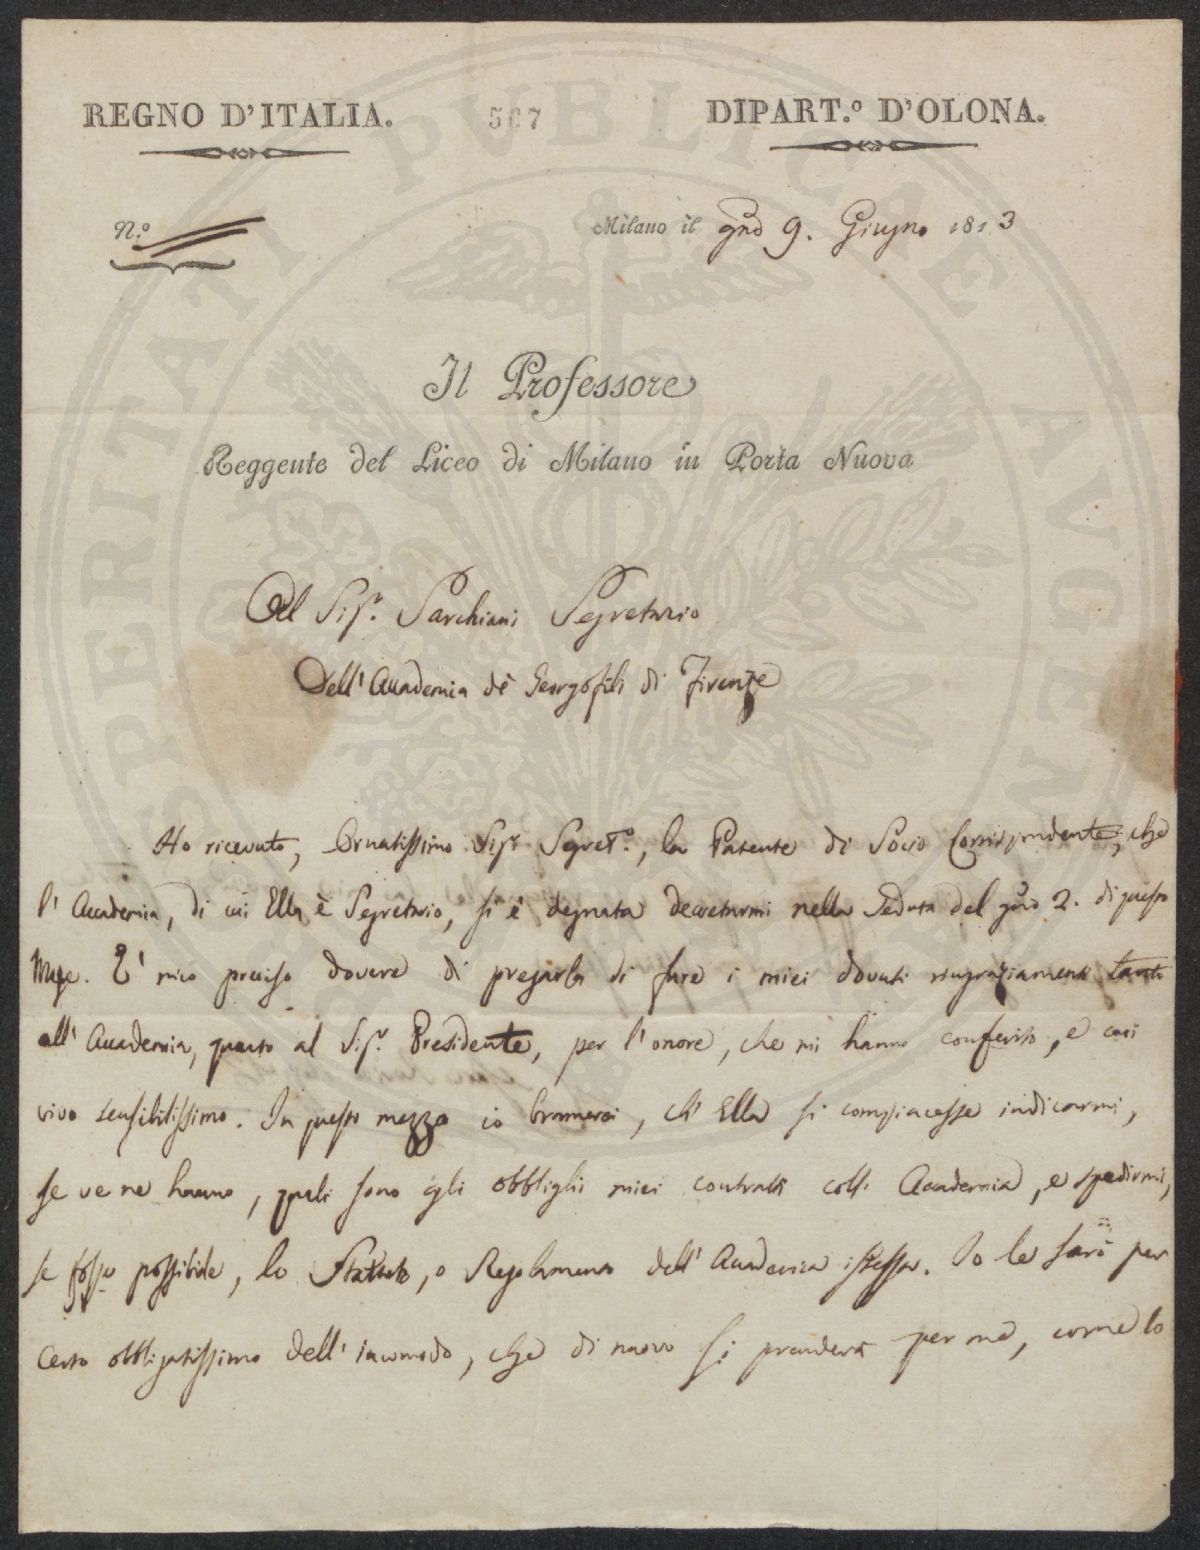 REGNO D'ITALIA. 567 DIPART.º D'OLONA.
N.º
Milano il gno 9. Giugno 1813
Il Professore
Reggente del Liceo di Milano in Porta Nuova
Al Sig.r Sarchiani Segretario
Dell'Accademia de' Georgofili di Firenze
Ho ricevuto, Ornatissimo Sig.r Segret.o, la Patente di Socio Corrispondente, che
l'Accademia, di cui Ella è Segretario, si è degnata decretarmi nella Seduta del gno 2. di questo
Mese. E' mio preciso dovere di pregarla di fare i miei dovuti ringraziamenti tanto
all'Accademia, quanto al Sig.r Presidente, per l'onore, che mi hanno conferito, e cui
vivo sensibilissimo. In questo mezzo io bramerei, ch'Ella si compiacesse indicarmi,
se ve ne hanno, quali sono gli obblighi miei contratti coll'Accademia, e spedirmi,
se fosse possibile, lo Statuto, o Regolamento dell'Accademia istessa. Io le sarò per
certo obbligatissimo dell'incomodo, che di nuovo si prenderà per me, come lo
PROSPERITATI PUBLICAE AUGENDAE